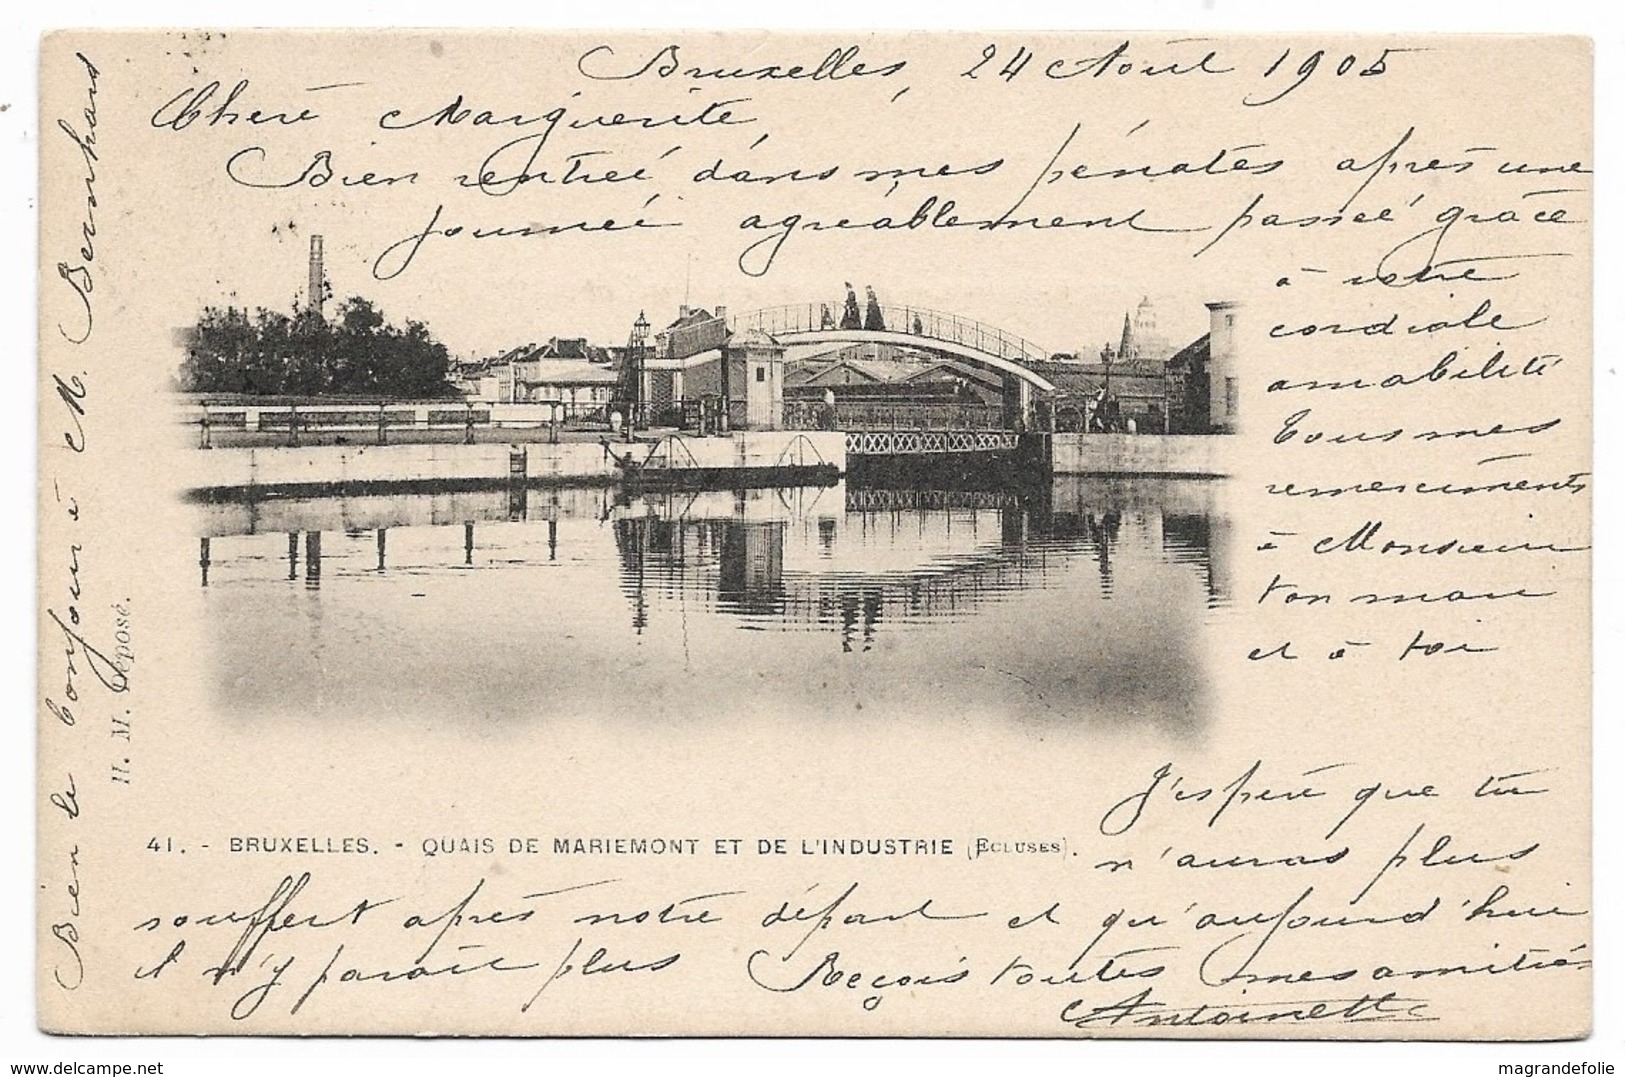 Bruxelles, 24 Août 1905
Chère Marguerite,
Bien rentrée dans mes pénates après une
journée agréablement passée grâce
à votre
cordiale
amabilité
Tous mes
remerciments
à Monsieur
ton mari
et à toi
J'espère que tu
n'auras plus
souffert après notre départ et qu'aujourd'hui
il n'y parait plus Reçois toutes mes amitiés
Antoinette
Bien le bonjour à M. Bernhard
H. M. Déposé.
41. - BRUXELLES. - QUAIS DE MARIEMONT ET DE L'INDUSTRIE (ECLUSES).
delcampe.net
magrandefolie